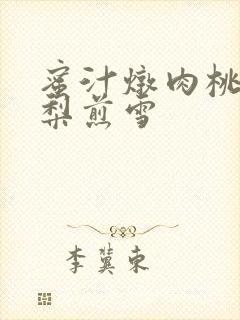 蜜汁燉肉桃
梨煎雪
李冀東